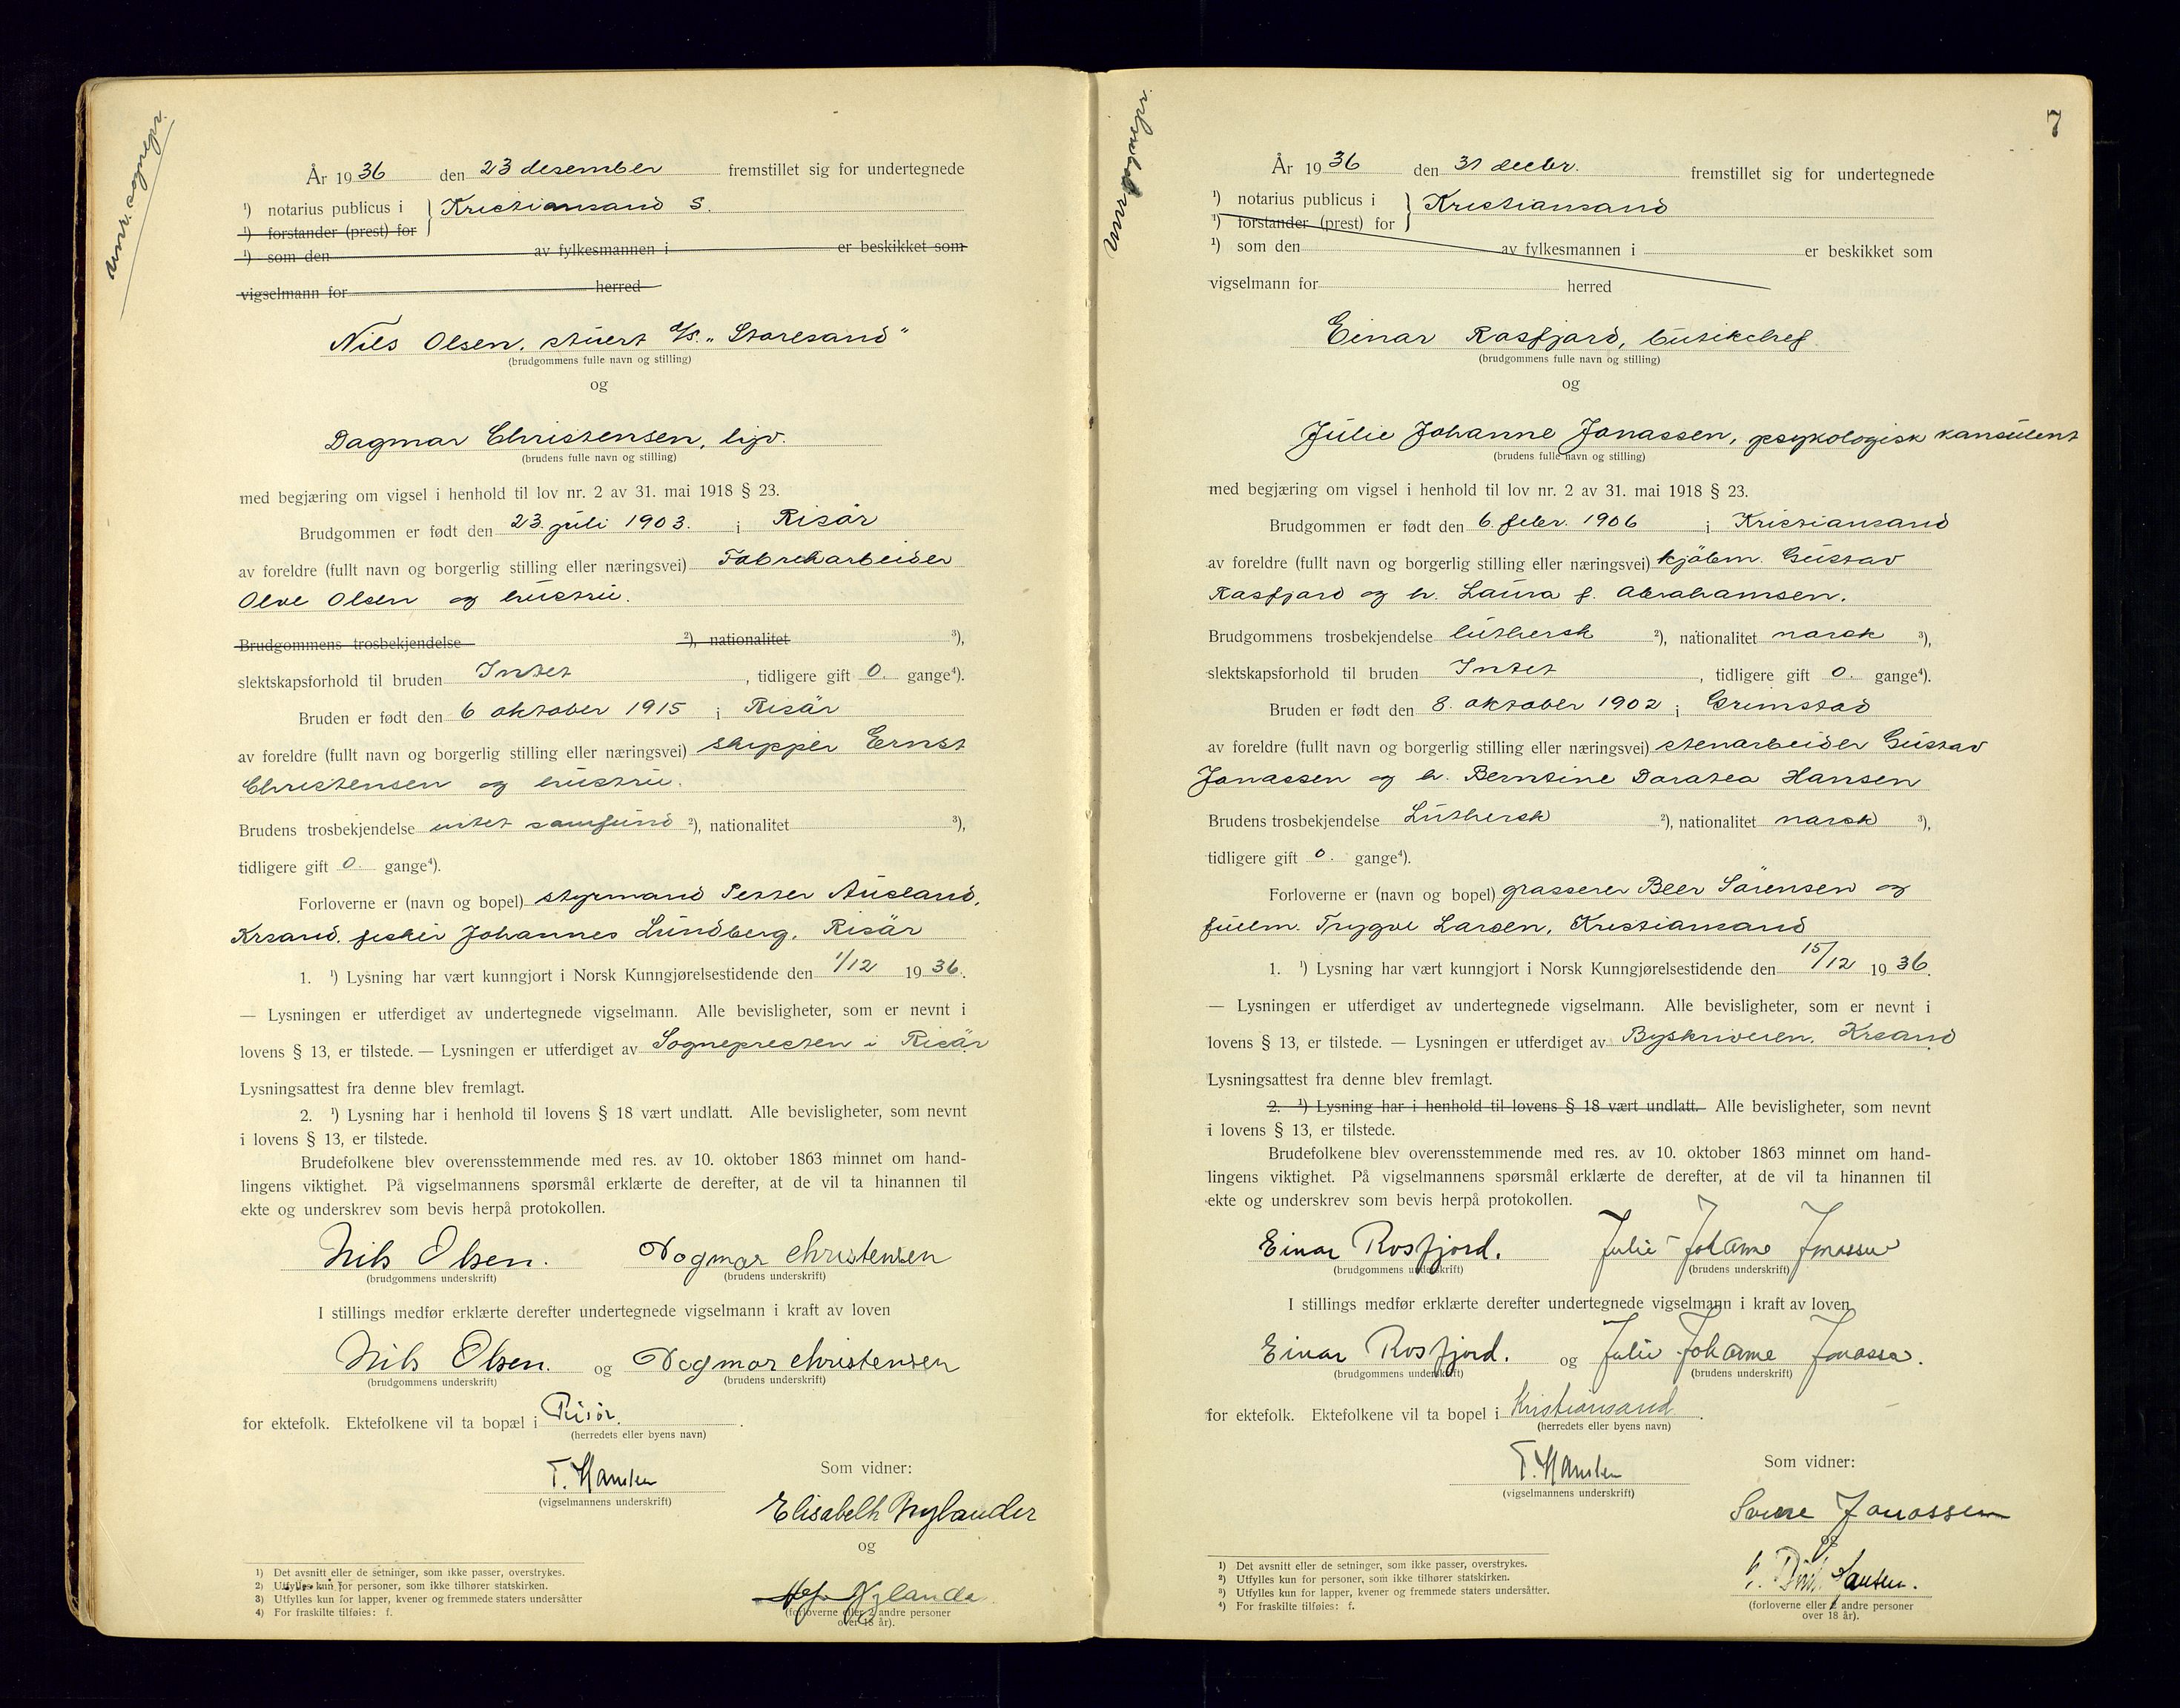 anm. sognepr.
År 1936 den 23 desember fremstillet sig for undertegnede
¹) notarius publicus i } Kristiansand S.
¹) forstander (prest) for
¹) som den av fylkesmannen i er beskikket som
vigselmann for herred
Nils Olsen, stuert d/s. „Storesand"
(brudgommens fulle navn og stilling)
og
Dagmar Christensen, ligv.
(brudens fulle navn og stilling)
med begjæring om vigsel i henhold til lov nr. 2 av 31. mai 1918 § 23.
Brudgommen er født den 23. juli 1903. i Risör
av foreldre (fullt navn og borgerlig stilling eller næringsvei) Fabrikarbeider
Olve Olsen og hustru.
Brudgommens trosbekjendelse ²), nationalitet ³),
slektskapsforhold til bruden Intet, tidligere gift 0. gange⁴).
Bruden er født den 6 oktober 1915 i Risör
av foreldre (fullt navn og borgerlig stilling eller næringsvei) skipper Ernst
Christensen og hustru.
Brudens trosbekjendelse intet samfund ²), nationalitet ³),
tidligere gift 0. gange⁴).
Forloverne er (navn og bopel) styrmand Petter Ausland,
Krsand. fisker Johannes Lundberg, Risör
1. ¹) Lysning har vært kunngjort i Norsk Kunngjørelsestidende den 1/12 1936.
— Lysningen er utferdiget av undertegnede vigselmann. Alle bevisligheter, som er nevnt i
lovens § 13, er tilstede. — Lysningen er utferdiget av Sognepresten i Risör
Lysningsattest fra denne blev fremlagt.
2. ¹) Lysning har i henhold til lovens § 18 vært undlatt. Alle bevisligheter, som nevnt
i lovens § 13, er tilstede.
Brudefolkene blev overensstemmende med res. av 10. oktober 1863 minnet om hand-
lingens viktighet. På vigselmannens spørsmål erklærte de derefter, at de vil ta hinannen til
ekte og underskrev som bevis herpå protokollen.
Nils Olsen. Dagmar Christensen
(brudgommens underskrift) (brudens underskrift)
I stillings medfør erklærte derefter undertegnede vigselmann i kraft av loven
Nils Olsen. og Dagmar Christensen
(brudgommens underskrift) (brudens underskrift)
for ektefolk. Ektefolkene vil ta bopæl i Risør.
(herredets eller byens navn)
T. Hansen Som vidner:
(vigselmannens underskrift)
Elisabeth Nylander
og
Nylander
(forloverne eller 2 andre personer
over 18 år).
1) Det avsnitt eller de setninger, som ikke passer, overstrykes.
2) Utfylles kun for personer, som ikke tilhører statskirken.
3) Utfylles kun for lapper, kvener og fremmede staters undersåtter
4) For fraskilte tilføies: f.
7
År 1936 den 31 decbr. fremstillet sig for undertegnede
¹) notarius publicus i } Kristiansand
¹) forstander (prest) for
¹) som den av fylkesmannen i er beskikket som
vigselmann for herred
Einar Rosfjord, butikchef
(brudgommens fulle navn og stilling)
og
Julie Johanne Jonassen, psykologisk konsulent
(brudens fulle navn og stilling)
med begjæring om vigsel i henhold til lov nr. 2 av 31. mai 1918 § 23.
Brudgommen er født den 6. febr. 1906 i Kristiansand
av foreldre (fullt navn og borgerlig stilling eller næringsvei) kjöbm. Gustav
Rosfjord og h. Laura f. Abrahamsen.
Brudgommens trosbekjendelse luthersk ²), nationalitet norsk ³),
slektskapsforhold til bruden Intet, tidligere gift 0. gange⁴).
Bruden er født den 8. oktober 1902 i Grimstad
av foreldre (fullt navn og borgerlig stilling eller næringsvei) stenarbeider Gustav
Jonassen og h. Berntine Doratea Hansen
Brudens trosbekjendelse Luthersk ²), nationalitet norsk ³),
tidligere gift 0. gange⁴).
Forloverne er (navn og bopel) grosserer Beer Sörensen og
fullm. Trygve Larsen, Kristiansand
1. ¹) Lysning har vært kunngjort i Norsk Kunngjørelsestidende den 15/12 1936.
— Lysningen er utferdiget av undertegnede vigselmann. Alle bevisligheter, som er nevnt i
lovens § 13, er tilstede. — Lysningen er utferdiget av Byskriveren, Krsand
Lysningsattest fra denne blev fremlagt.
2. ¹) Lysning har i henhold til lovens § 18 vært undlatt. Alle bevisligheter, som nevnt
i lovens § 13, er tilstede.
Brudefolkene blev overensstemmende med res. av 10. oktober 1863 minnet om hand-
lingens viktighet. På vigselmannens spørsmål erklærte de derefter, at de vil ta hinannen til
ekte og underskrev som bevis herpå protokollen.
Einar Rosfjord. Julie Johanne Jonassen
(brudgommens underskrift) (brudens underskrift)
I stillings medfør erklærte derefter undertegnede vigselmann i kraft av loven
Einar Rosfjord. og Julie Johanne Jonassen.
(brudgommens underskrift) (brudens underskrift)
for ektefolk. Ektefolkene vil ta bopel i Kristiansand.
(herredets eller byens navn)
T. Hansen Som vidner:
(vigselmannens underskrift)
Sverre Jonassen
og
(forloverne eller 2 andre personer
over 18 år).
1) Det avsnitt eller de setninger, som ikke passer, overstrykes.
2) Utfylles kun for personer, som ikke tilhører statskirken.
3) Utfylles kun for lapper, kvener og fremmede staters undersåtter.
4) For fraskilte tilføies: f.